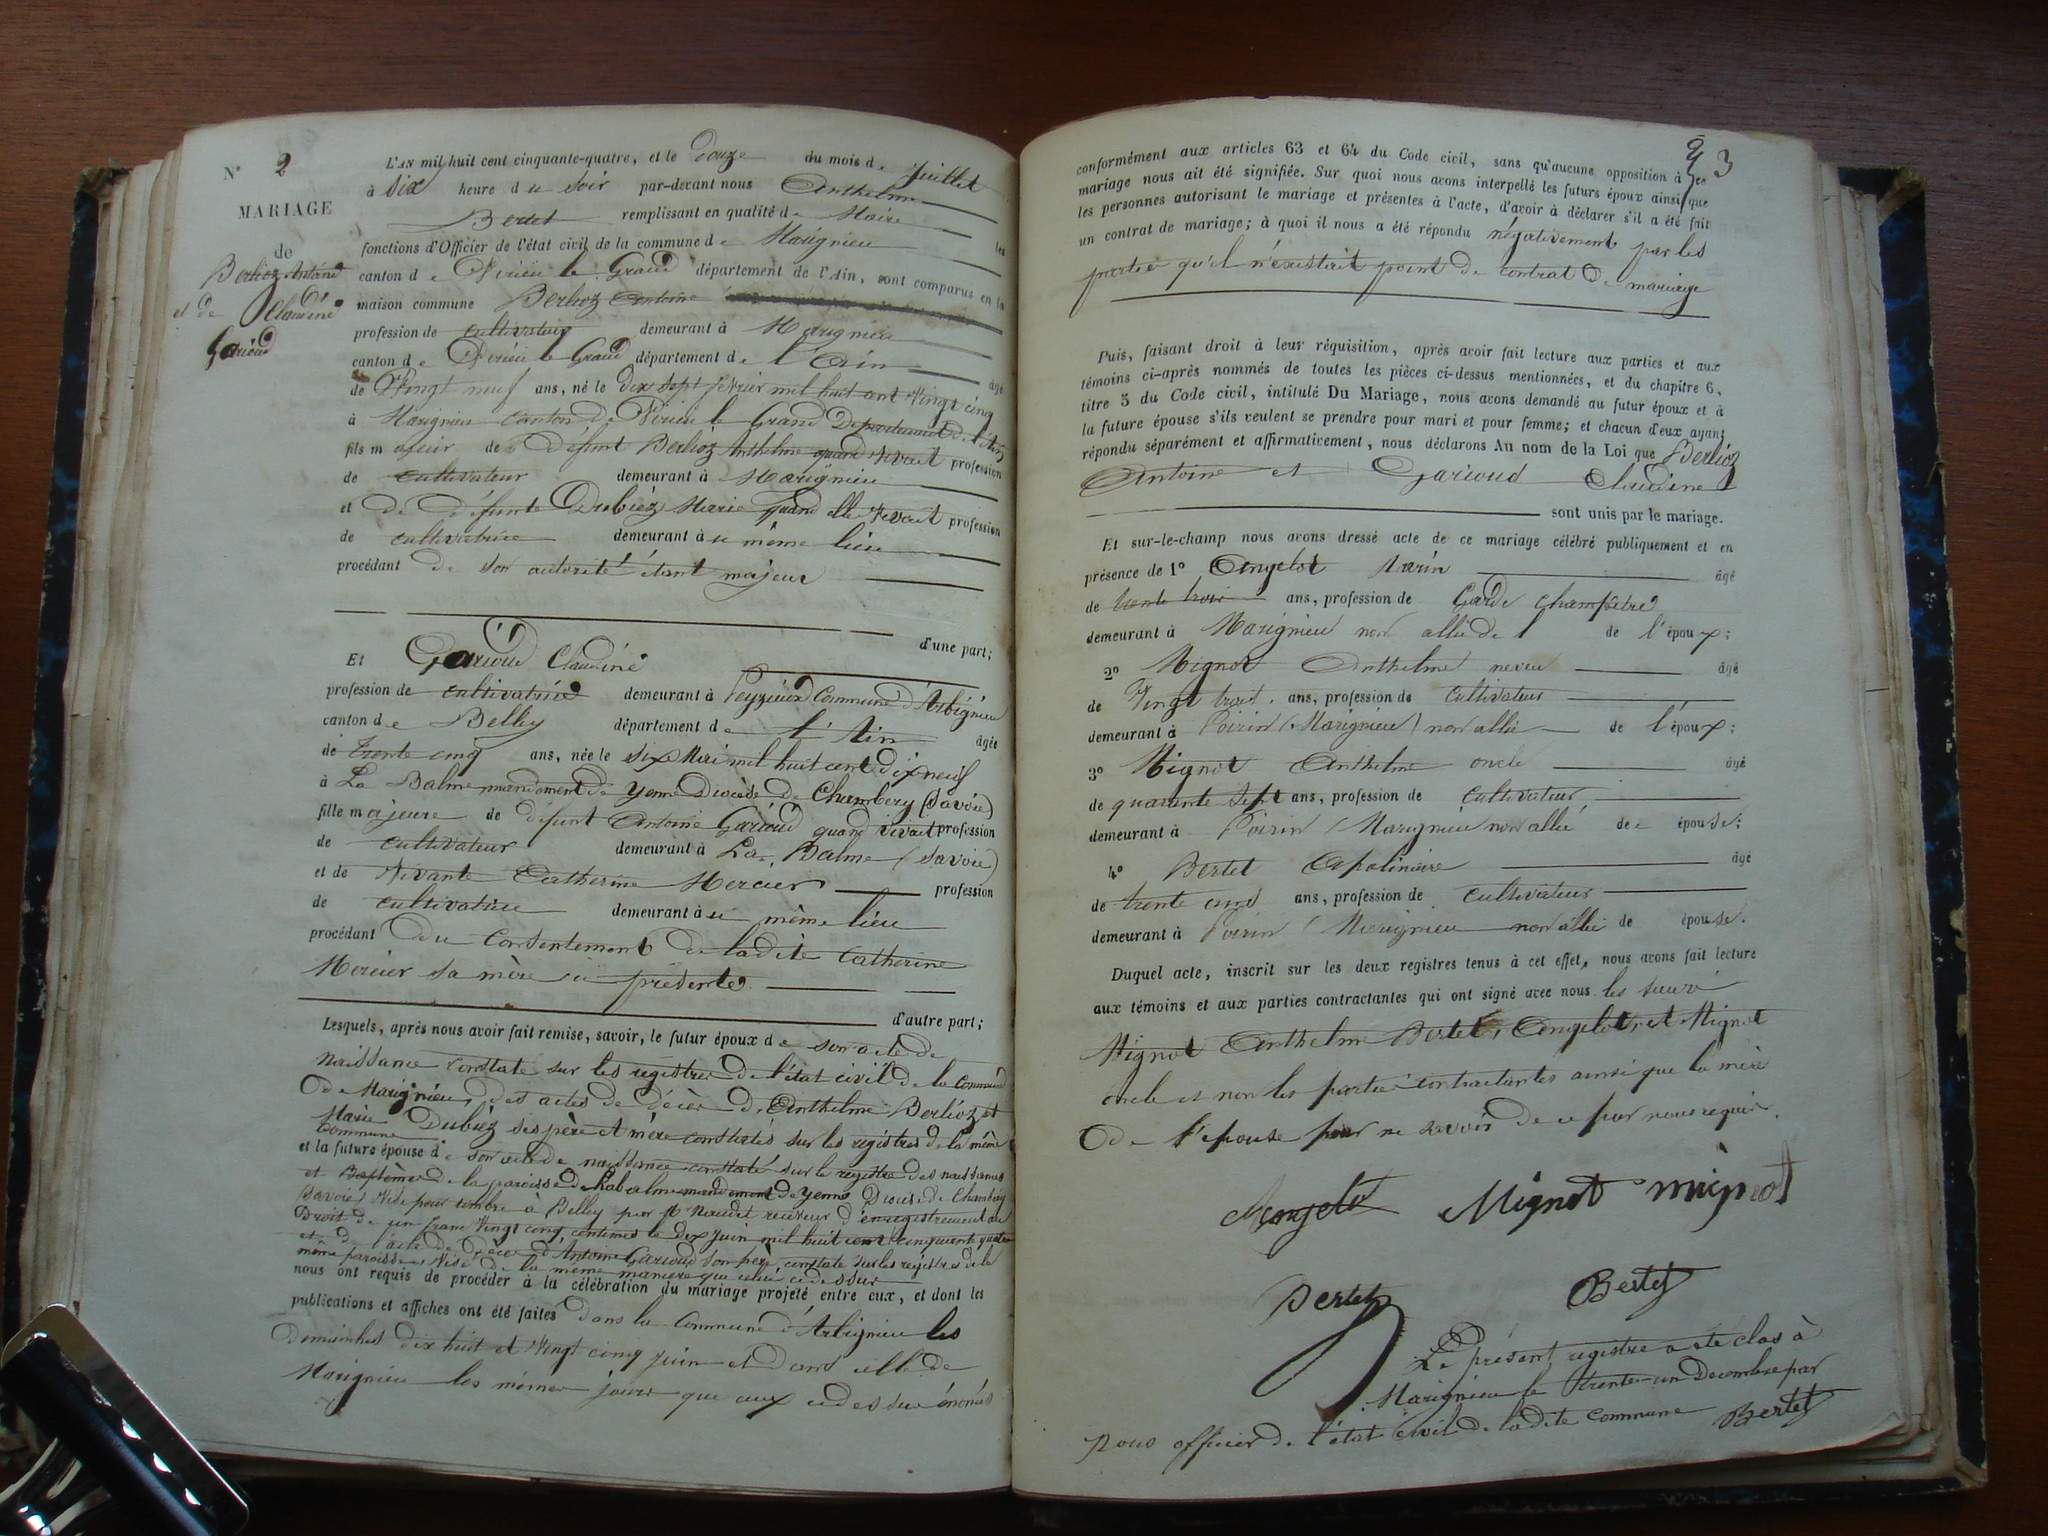 N° 2
MARIAGE
de
Berlioz Antoine
et de Claudine
Garioud
L'AN mil huit cent cinquante-quatre, et le douze du mois de Juillet
à six heure du soir par-devant nous Anthelme
Bertet remplissant en qualité de Maire les
fonctions d'Officier de l'état civil de la commune de Marignieu
canton de Virieu le Grand département de l'Ain, sont comparus en la
maison commune Berlioz Antoine
profession de cultivateur demeurant à Marignieu
canton de Virieu le Grand département de l'Ain âgé
de Vingt neuf ans, né le dix sept février mil huit cent Vingt cinq
à Marignieu Canton de Virieu le Grand Departement de l'Ain
fils majeur de défunt Berlioz Anthelme quand vivait profession
de cultivateur demeurant à Marignieu
et de défunte Dubiez Marie quand elle Vivait profession
de cultivatrice demeurant à ce même lieu
procédant de son autorité étant majeur
d'une part;
Et Garioud Claudine
profession de cultivatrice demeurant à Peyzieux Commune d'Arbignieu
canton de Belley département de l'Ain âgée
de Trente cinq ans, née le six Mai mil huit cent dix neuf
à La Balme mandement de Yenne Diocèse de Chambery (Savoie)
fille majeure de défunt Antoine Garioud quand vivait profession
de cultivateur demeurant à La Balme (Savoie)
et de Vivante Catherine Mercier profession
de cultivatrice demeurant à ce même lieu
procédant du consentement de ladite Catherine
Mercier sa mère ici présente
d'autre part;
Lesquels, après nous avoir fait remise, savoir, le futur époux de son acte de
naissance constaté sur les registres de l'état civil de la Commune
de Marignieu, des actes de décès d'Anthelme Berlioz et
Marie Dubiez ses père et mère constatés sur les registres de la même
Commune
et la future épouse de son acte de naissance constaté sur le registre des naissances
et Baptèmes de la paroisse de Labalme mandement de Yenne Diocèse de Chambery
(Savoie) Visé pour timbre à Belley par Mr Naudet receveur d'enregistrement au
Droit de un franc Vingt cinq centimes le dix juin mil huit cent cinquante quatre
et de l'acte de Décès d'Antoine Garioud son père constaté sur les registres de la
même paroisse, Visé de la même manière que celui ci dessus
nous ont requis de procéder à la célébration du mariage projeté entre eux, et dont les
publications et affiches ont été faites dans la Commune d'Arbignieu les
Dimanches dix huit et Vingt cinq juin et dans celle de
Marignieu les mêmes jours que ceux cidessus énoncés
2 3
conformément aux articles 63 et 64 du Code civil, sans qu'aucune opposition à ce
mariage nous ait été signifiée. Sur quoi nous avons interpellé les futurs époux ainsi que
les personnes autorisant le mariage et présentes à l'acte, d'avoir à déclarer s'il a été fait
un contrat de mariage; à quoi il nous a été répondu négativement par les
partie qu'il n'éxistait point de contrat de mariage
Puis, faisant droit à leur réquisition, après avoir fait lecture aux parties et aux
témoins ci-après nommés de toutes les pièces ci-dessus mentionnées, et du chapitre 6,
titre 5 du Code civil, intitulé Du Mariage, nous avons demandé au futur époux et à
la future épouse s'ils veulent se prendre pour mari et pour femme; et chacun d'eux ayant
répondu séparément et affirmativement, nous déclarons Au nom de la Loi que Berlioz
Antoine et Garioud Claudine
sont unis par le mariage.
Et sur-le-champ nous avons dressé acte de ce mariage célébré publiquement et en
présence de 1° Angelot Marin âgé
de trente trois ans, profession de Garde champêtre
demeurant à Marignieu non allié de l de l'époux:
2° Mignot Anthelme neveu âgé
de Vingt trois ans, profession de cultivateur
demeurant à Poirin (Marignieu) non allié de l'époux:
3° Mignot Anthelme oncle âgé
de quarante sept ans, profession de cultivateur
demeurant à Poirin (Marignieu non allié de épouse:
4° Bertet Apolinaire âgé
de trente ans, profession de cultivateur
demeurant à Poirin (Marignieu non allié de épouse.
Duquel acte, inscrit sur les deux registres tenus à cet effet, nous avons fait lecture
aux témoins et aux parties contractantes qui ont signé avec nous les
Mignot Anthelme Bertet, Angelot, et Mignot
oncle et non les partie contractantes ainsi que la mère
de l'épouse pour ne savoir de ce par nous requis.
Angelot Mignot mignot
Bertet Bertet
Le présent registre a été clos à
Marignieu le trente-un Decembre par
nous officier de l'état civil de ladite commune Bertet